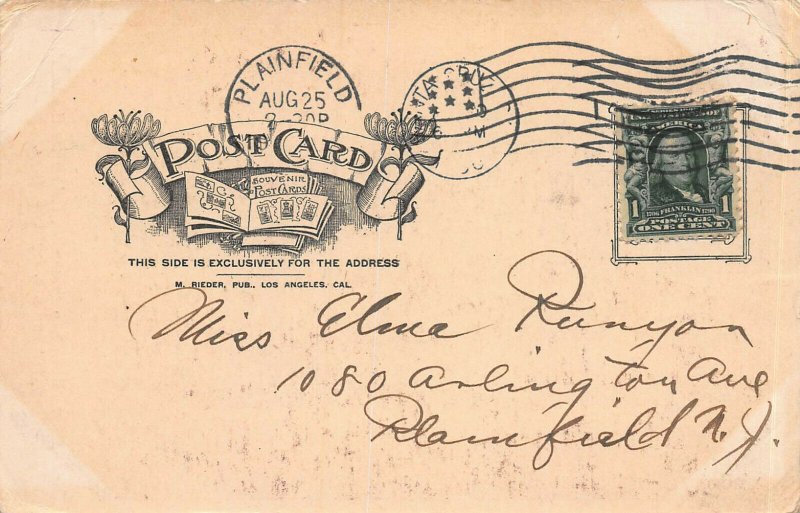 PLAINFIELD
AUG 25
POST CARD
SOUVENIR
POST CARDS
THIS SIDE IS EXCLUSIVELY FOR THE ADDRESS
M. RIEDER, PUB., LOS ANGELES, CAL.
1 1706 FRANKLIN 1790 1
POSTAGE
ONE CENT
Miss Elma Runyon
1080 Arlington Ave
Plainfield N. J.